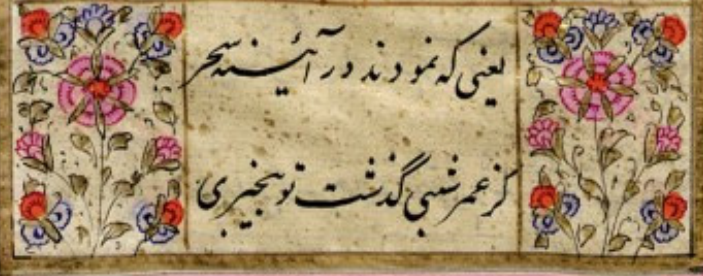 یعنی که نمودند در آئینه سحر
کز عمر شبی گذشت تو بیخبری